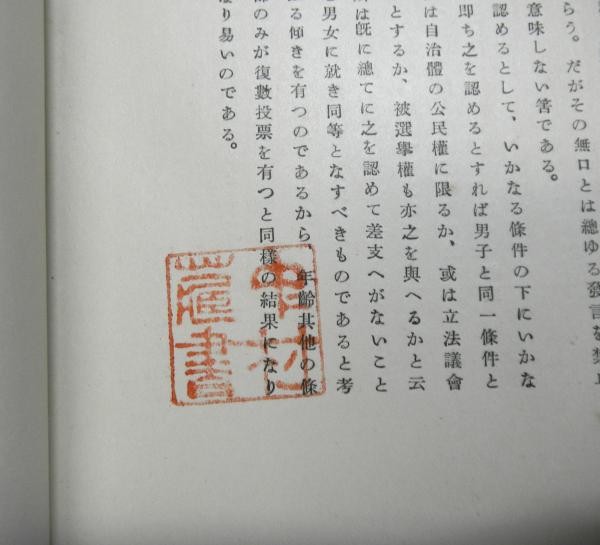 らう。だがその無口とは總ゆる發言を禁止
意味しない筈である。
認めるとして、いかなる條件の下にいかな
即ち之を認めるとすれば男子と同一條件と
は自治體の公民權に限るか、或は立法議會
とするか、被選擧權も亦之を與へるかと云
は旣に總てに之を認めて差支へがないこと
男女に就き同等となすべきものであると考
る傾きを有つのであるから、年齡其他の條
のみが復數投票を有つと同樣の結果になり
り易いのである。
藏書